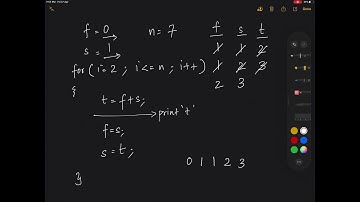 f = 0 n = 7 f s t
s = 1 1 1 2
for (i=2 ; i<=n ; i++) 1 2 3
{ 2 3
t = f+s;
print 't'
f=s;
s = t ;
0 1 1 2 3
}